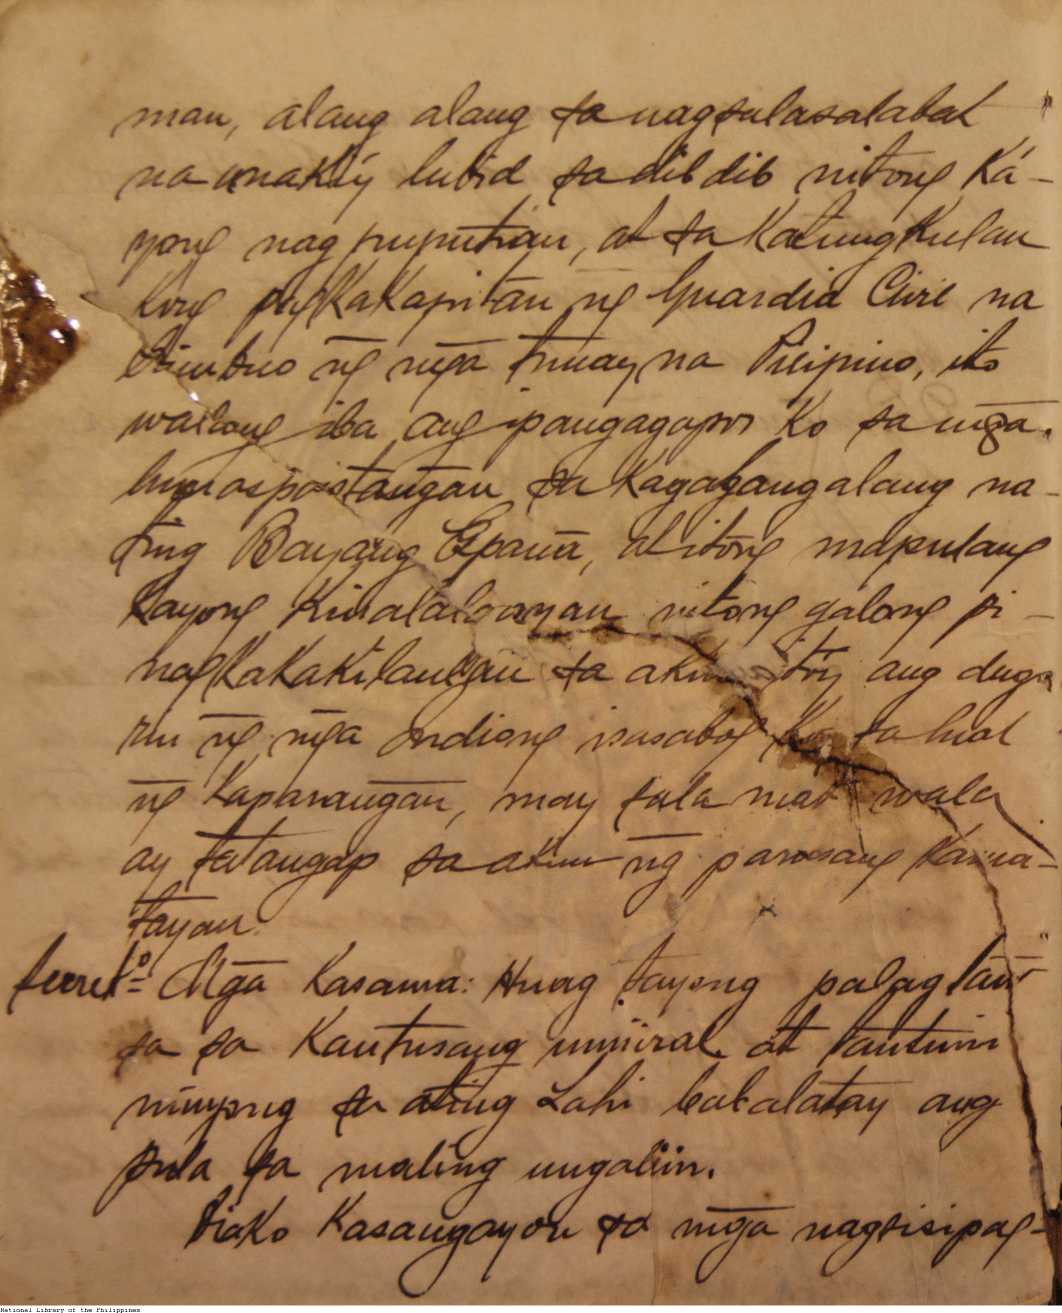 man, alang alang sa nagsalasalabat
na anaki'y lubid sa dibdib nitong Ká-
yong nagpuputian, at sa Katungkulan
kong pagkakapitan ng Guardia Civil na
binubuo ng mga tunay na Pilipino, ito
walang iba ang ipangagapos ko sa mga
sa Kagalanggalang na-
ting Bayang España, at itong mapulang
Kayong Kinalalagayan nitong galong pi-
nagkakakilanlan sa akin ang dugo
ng mga indiong isasabog Ko sa
ng Kaparangan, may sala mat wala
ay tatangap sa akin ng parusang Kama-
tayan.
Secret.º Mga Kasama: Huag tayong palag
sa sa Kautusang at tantuin
ninyong sa ating Lahi babalatay ang
pula sa maling ungaliin.
Diako Kasangayon sa mga nagsisipag-
National Library of the Philippines